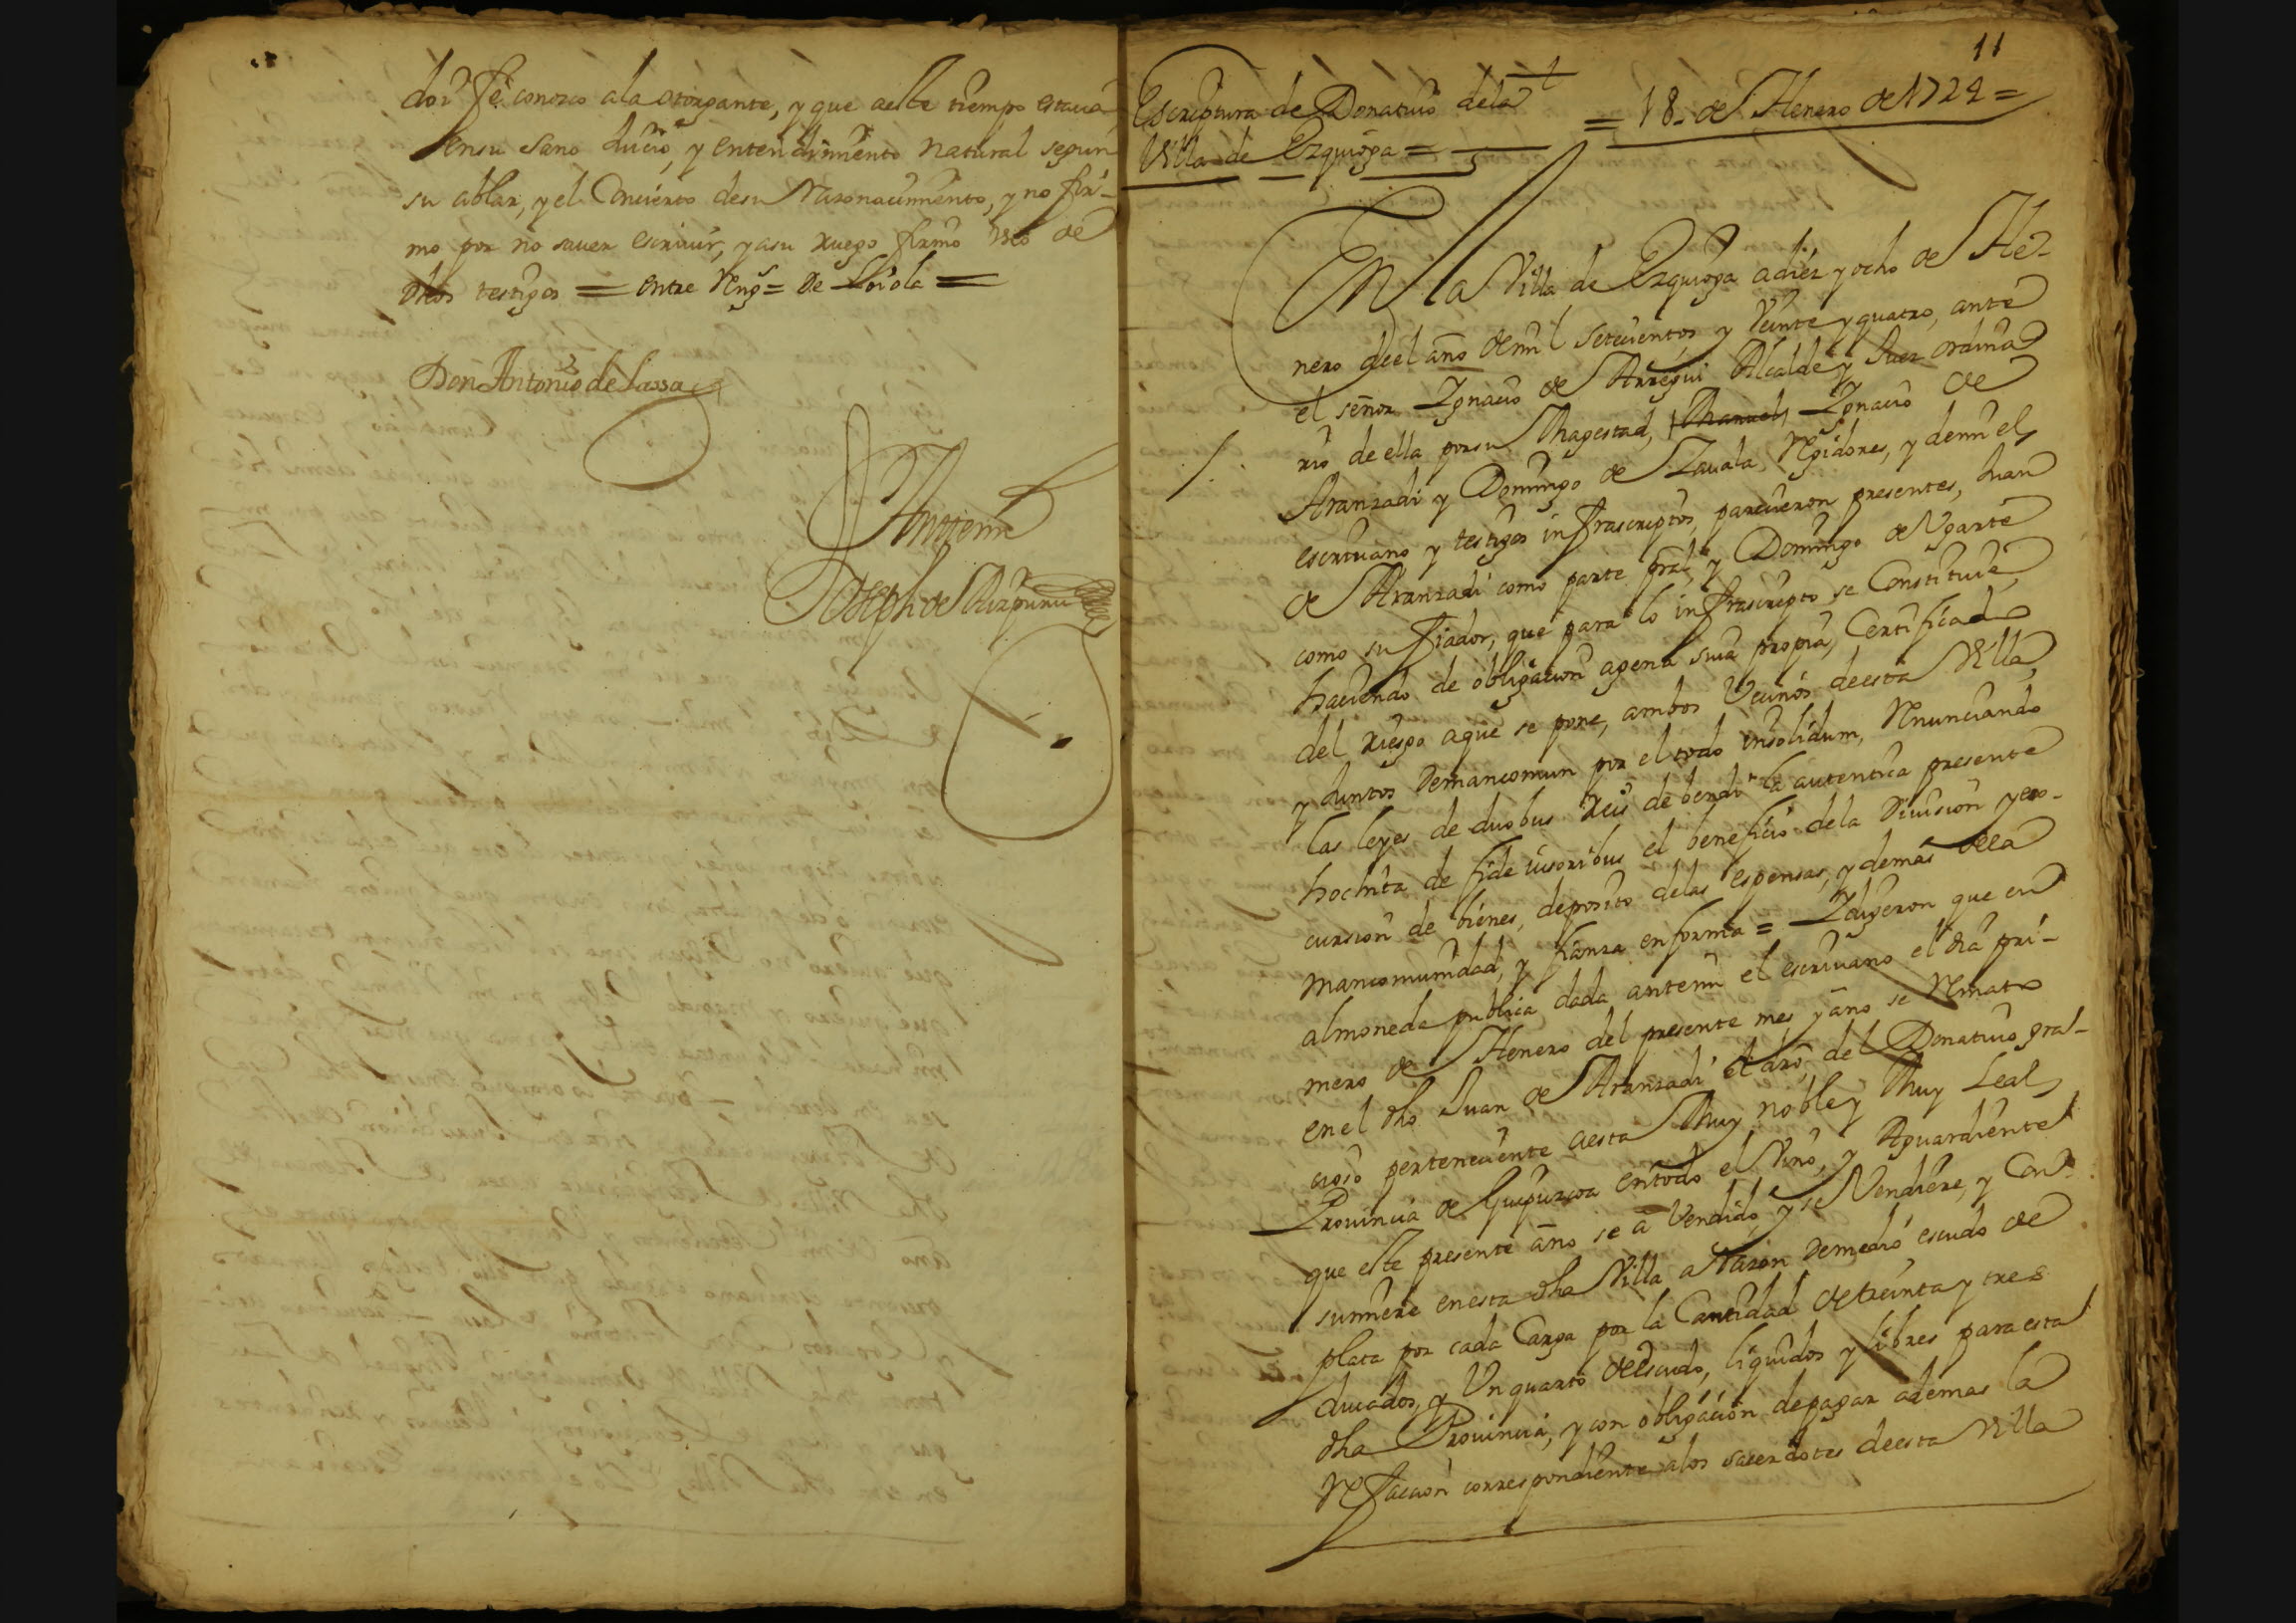 doi fe conozco ala otorgante, y que aeste tiempo estaua
ensu sano Juiçio, y entendimiento natural segun
su ablar, y el Conçierto desu Razonaçimiento, y no fir-
mo por no sauer escriuir, y asu ruego firmo vno de
dhos testigos = entre Rengs = De Loiola =
Don Antonio de Lassa
Antemi
Joseph de Aizpuru
11
Escriptura de Donatiuo dela
Villa de Ezquioga =
= 18 - de Henero de 1724 =
En la Villa de Ezquioga adiez y ocho de He-
nero deel año demil seteçientos y Veinte y quatro, ante
el señor Ignaçio de Arregui Alcalde y Juez ordina
rio de ella porsu Magestad, Manuel Ignaçio de
Aranzadi y Domingo de Zauala Regidores, y demi el
escriuano y testigos infrascriptos, pareçieron presentes, Juan
de Aranzadi como parte prãl, y Domingo de Vgarte
como su fiador, que para lo infrascripto se Constituie,
haçiendo de obligaçion agena suia propia, Çertificado
del riesgo aque se pone, ambos Veçinos deesta Villa,
y Juntos Demancomun por el todo insolidum, Renunciando
las leyes de duobus Reis debendi la autentica presente
hochita de fide iusoribus el benefiçio dela Diuision yex-
cursion de bienes, deposito delas espensas, y demas dela
mancomunidad, y fianza enforma = Idigeron que en
almoneda publica dada antemi el escriuano el dia pri-
mero de Henero del presente mes y año se Remato
en el dho Juan de Aranzadi el dro, del Donatiuo gral-
çioso perteneçiente aesta Muy noble y Muy Leal
Prouinçia de Guipuzcoa entodo el Vino, y Aguardiente
que este presente año se a Vendido, y se Vendiere, y Con-
sumiere enesta dha Villa a Razon Demedio escudo de
plata por cada Carga por la Cantidad detreinta y tres
ducados, y Vn quarto deescudo, liquidos y libres para esta
dha Prouinçia, y con obligaçion depagar ademas la
Refaçion correspondiente alos saçerdotes deesta Villa